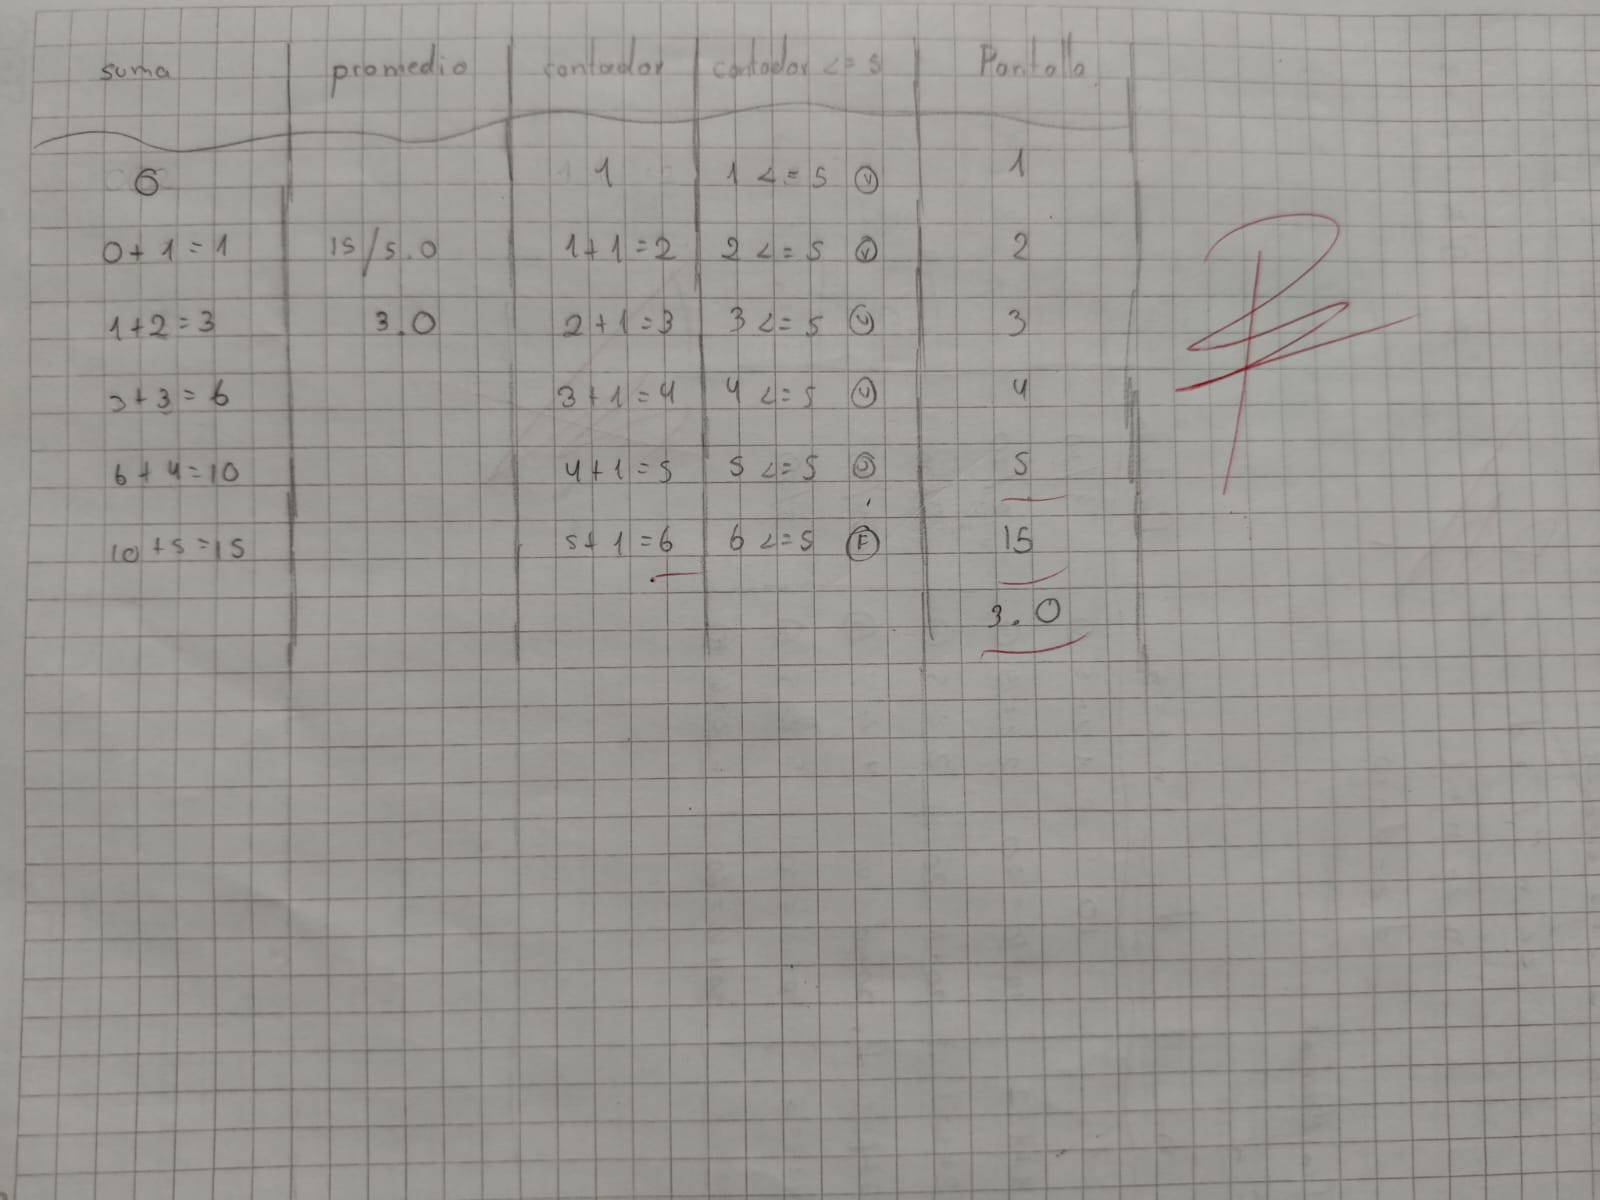 suma promedio contador contador <= 5 Pantalla
0 1 1 <= 5 V 1
0+1=1 15/5.0 1+1=2 2 <= 5 V 2
1+2=3 3.0 2+1=3 3 <= 5 V 3
3+3=6 3+1=4 4 <= 5 V 4
6+4=10 4+1=5 5 <= 5 V 5
10+5=15 5+1=6 6 <= 5 F 15
3.0